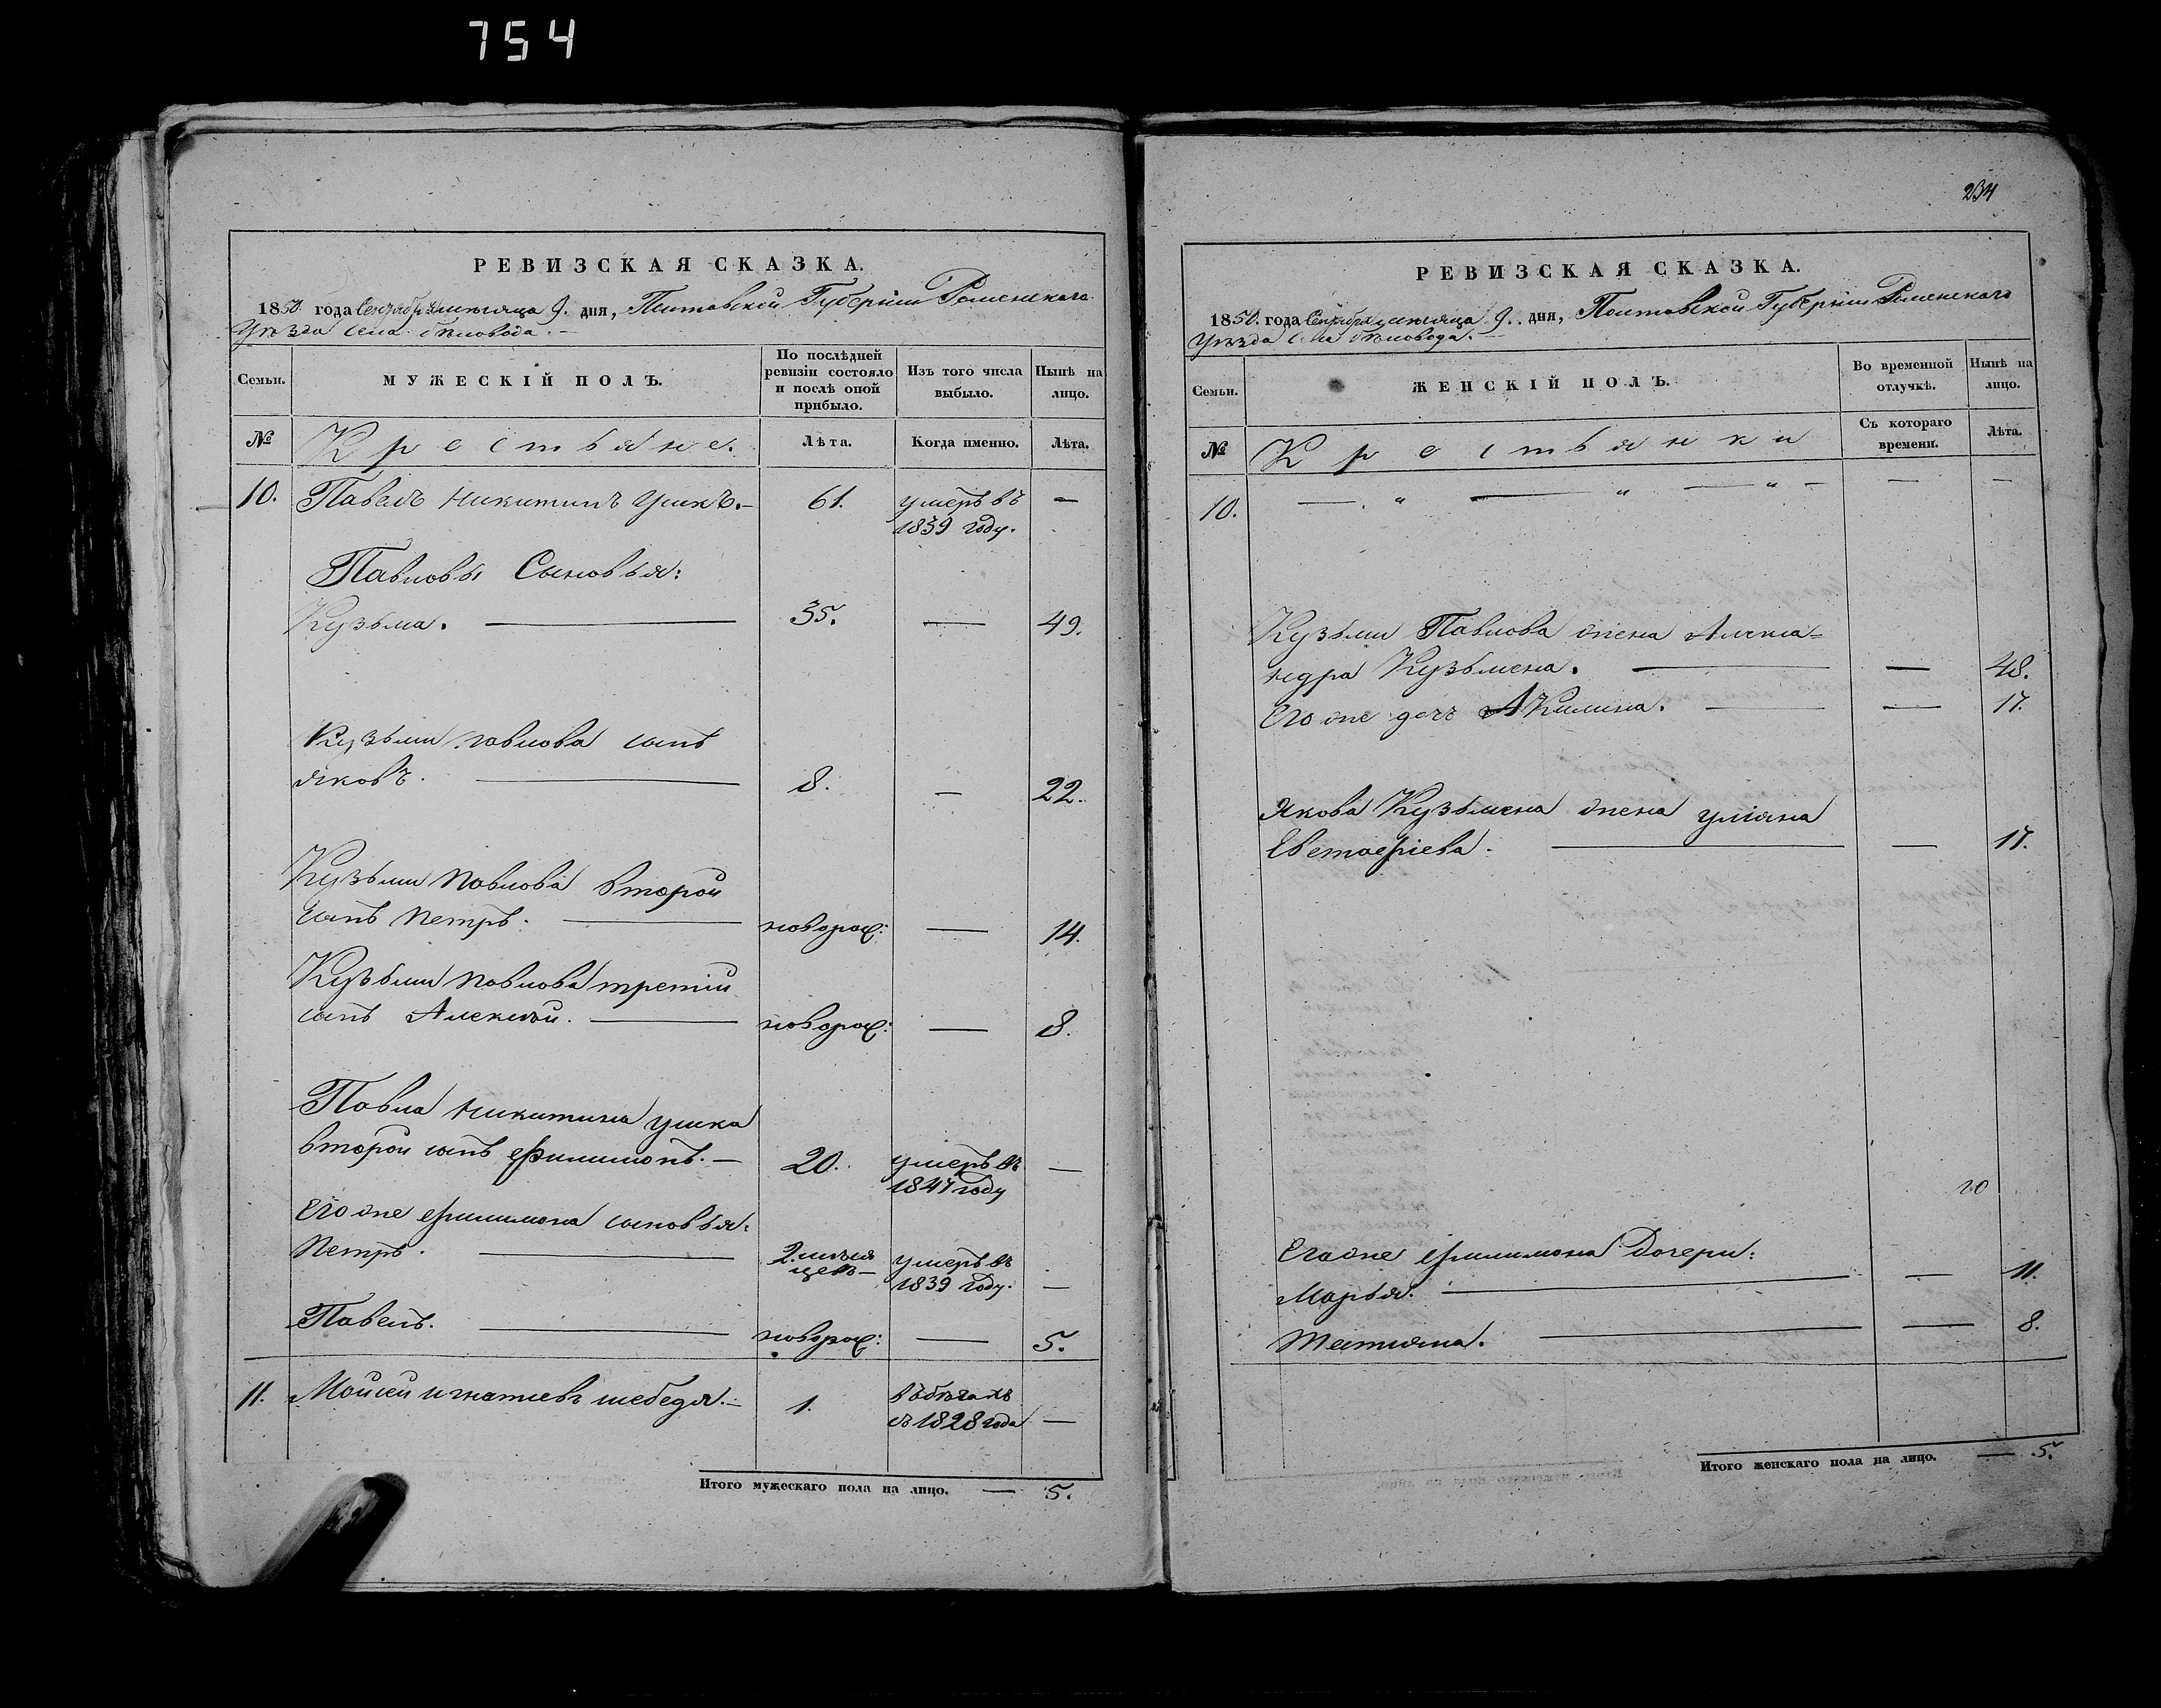 754
РЕВИЗСКАЯ СКАЗКА.
1850. года Сентября мѣсяца 9. дня, Полтавской Губерніи Роменскаго
Уѣзда села бѣловода. –
Семьи.
МУЖЕСКІЙ ПОЛЪ.
По послѣдней ревизіи состояло и послѣ оной прибыло.
Изъ того числа выбыло.
Нынѣ на лицо.
№
Крестьяне.
Лѣта.
Когда именно.
Лѣта.
10. Павелъ Никитинъ Ушкъ. – 61. умеръ въ —
1839 году.
Павловы Сыновья:
Кузьма. — 35. — 49.
Кузьмы павлова сынъ
яковъ. — 8. — 22.
Кузьмы павлова второй
сынъ петръ. — новорож: — 14.
Кузьмы павлова третій
сынъ Алексѣй. — новорож: — 8.
Павла никитина ушка
второй сынъ филимонъ. – 20. умеръ въ —
1847 году
Его же филимона сыновья:
петръ. — 2. мѣся умеръ въ
цев – 1839 году. —
Павелъ. — новорож: — 5.
11. Мойсей игнатьевъ шебедя. – 1. въ бѣгахъ
съ 1828 года —
Итого мужескаго пола на лицо. — 5.
234
РЕВИЗСКАЯ СКАЗКА.
1850. года Сентября мѣсяца 9. дня, Полтавской Губерніи Роменскаго
Уѣзда села бѣловода. –
Семьи.
ЖЕНСКІЙ ПОЛЪ.
Во временной отлучкѣ.
Нынѣ на лицо.
№
Крестьянки
Съ котораго времени.
Лѣта.
10. — „ — „ — „ – — —
Кузьмы Павлова жена Алекса=
ндра Кузьмена. — — 48.
Его же дочь Акилина. — — 17.
Якова Кузьмена жена уліяна
Евстафіева. — — 17.
20
Его же филимона Дочери:
Марья. — — 11.
Татияна. — — 8.
Итого женскаго пола на лицо. — 5.